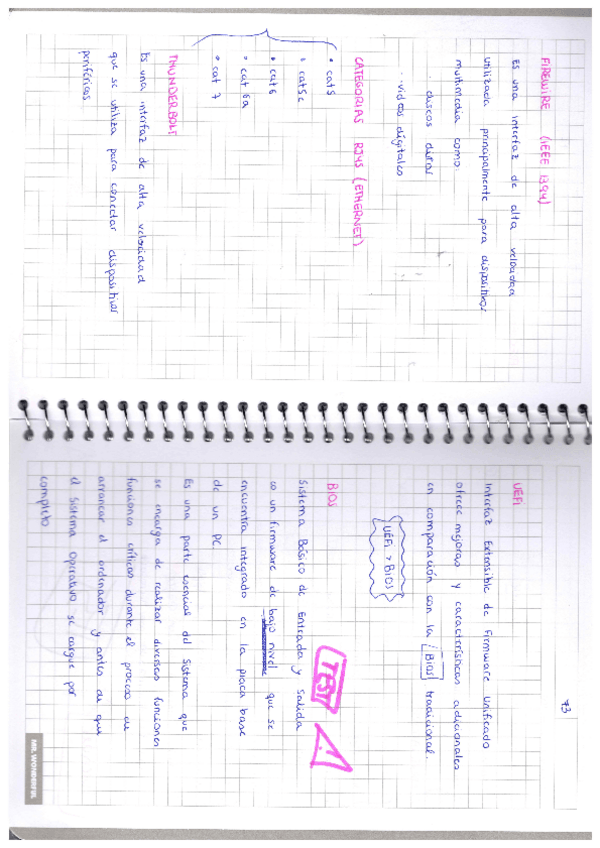 FIREWIRE (IEEE 1394)
Es una interfaz de alta velocidad
utilizada principalmente para dispositivos
multimedia como:
· discos duros
· videos digitales
CATEGORIAS RJ45 (ETHERNET)
• cat 5
• cat 5e
• cat 6
• cat 6a
• cat 7
THUNDERBOLT
Es una interfaz de alta velocidad
que se utiliza para conectar dispositivos
periféricos
73
UEFI
Interfaz Extensible de Firmware Unificado
ofrece mejoras y características adicionales
en comparación con la Bios tradicional.
UEFI > BIOS
BIOS
TEST !
Sistema Básico de Entrada y Salida
co un firmware de bajo nivel que se
encuentra integrado en la placa base
de un PC
Es una parte esencial del sistema que
se encarga de realizar diversas funciones
funciones críticas durante el proceso de
arrancar el ordenador y antes de que
el Sistema Operativo se cargue por
completo
MR. WONDERFUL